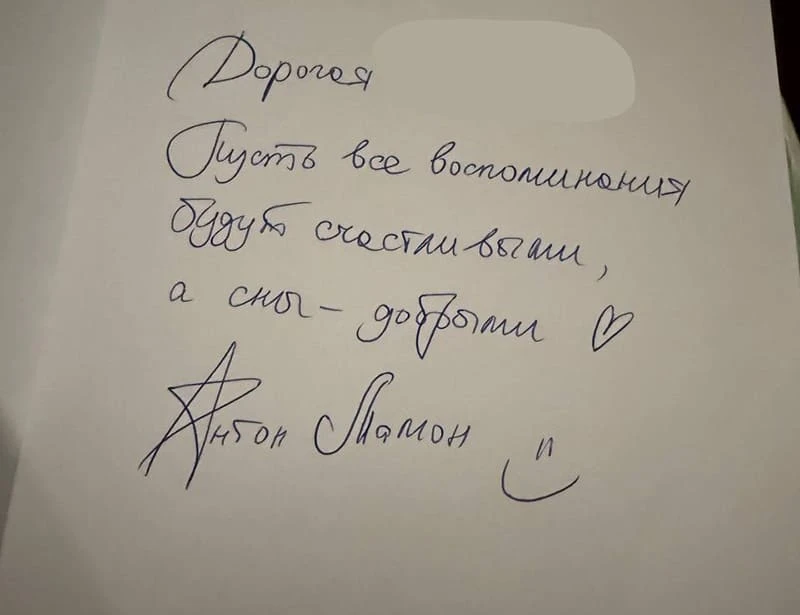 Дорогая
Пусть все воспоминания
будут счастливыми,
а сны – добрыми ♡
Антон Мамон